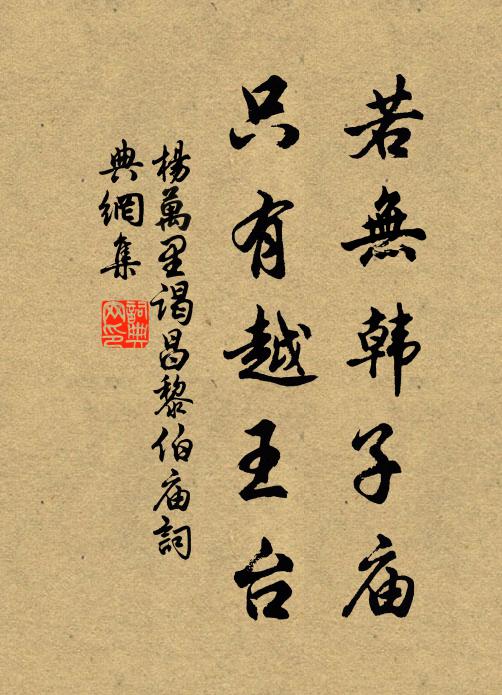 若無韩子庙
只有越王台
楊萬里谒昌黎伯庙詞
典網集
詞典
网印